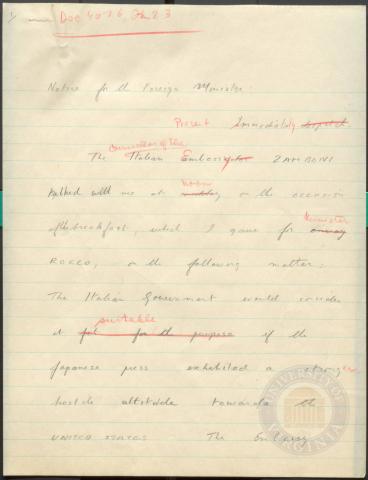 Doc 4076, P 23
Notice for the Foreign Minister.
Present Immediately
councillor of the
The Italian Embassy ZAMBONI
noon
talked with me at midday on the occasion
minister
of the breakfast, which I gave for envoy
ROCCO, on the following matter:
The Italian Government would consider
suitable
it fit for the purpose if the
Japanese press exhibited a stronger
hostile attitude towards the
UNITED STATES The
UNIVERSITY OF VIRGINIA